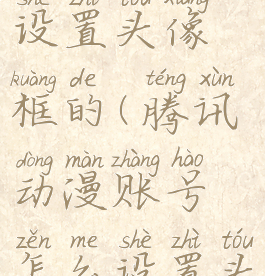 shè zhì tóu xiàng
设置头像
kuàng de téng xùn
框的(腾讯
dòng màn zhàng hào
动漫账号
zěn me shè zhì tóu
怎么设置头